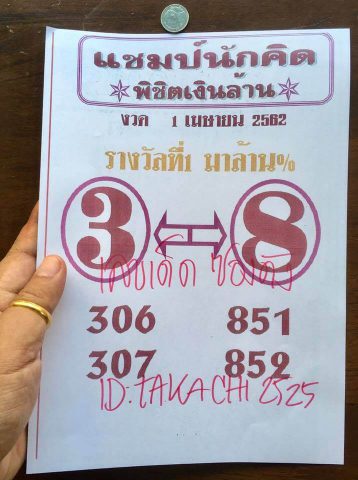 แชมป์นักคิด
พิชิตเงินล้าน
งวด 1 เมษายน 2562
รางวัลที่1 มาล้าน%
3 8
เลขเด็ด ซองดัง
306 851
307 852
ID:TAKACHI2525